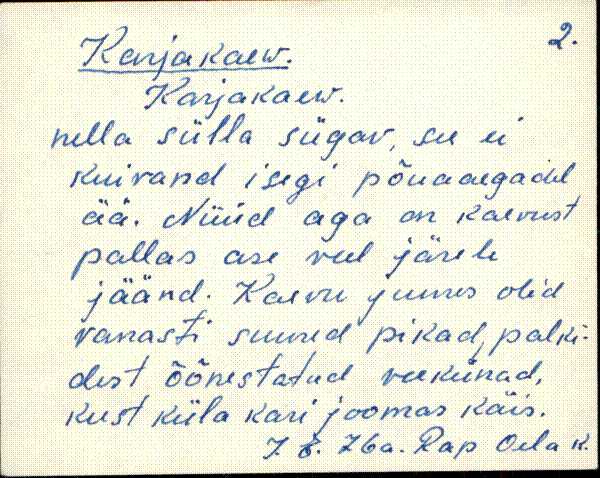 2.
Karjakaew.
Karjakaew.
nella sülla sügav, see ei
kuivand isegi põuaaegadel
ää. Nüüd aga on kaevust
pallas ase veel järele
jäänd. Kaevu juures olid
vanasti suured pikad, palki-
dest õõnestatud veekünad,
kust küla kari joomas käis.
76a. Rap Oela k.